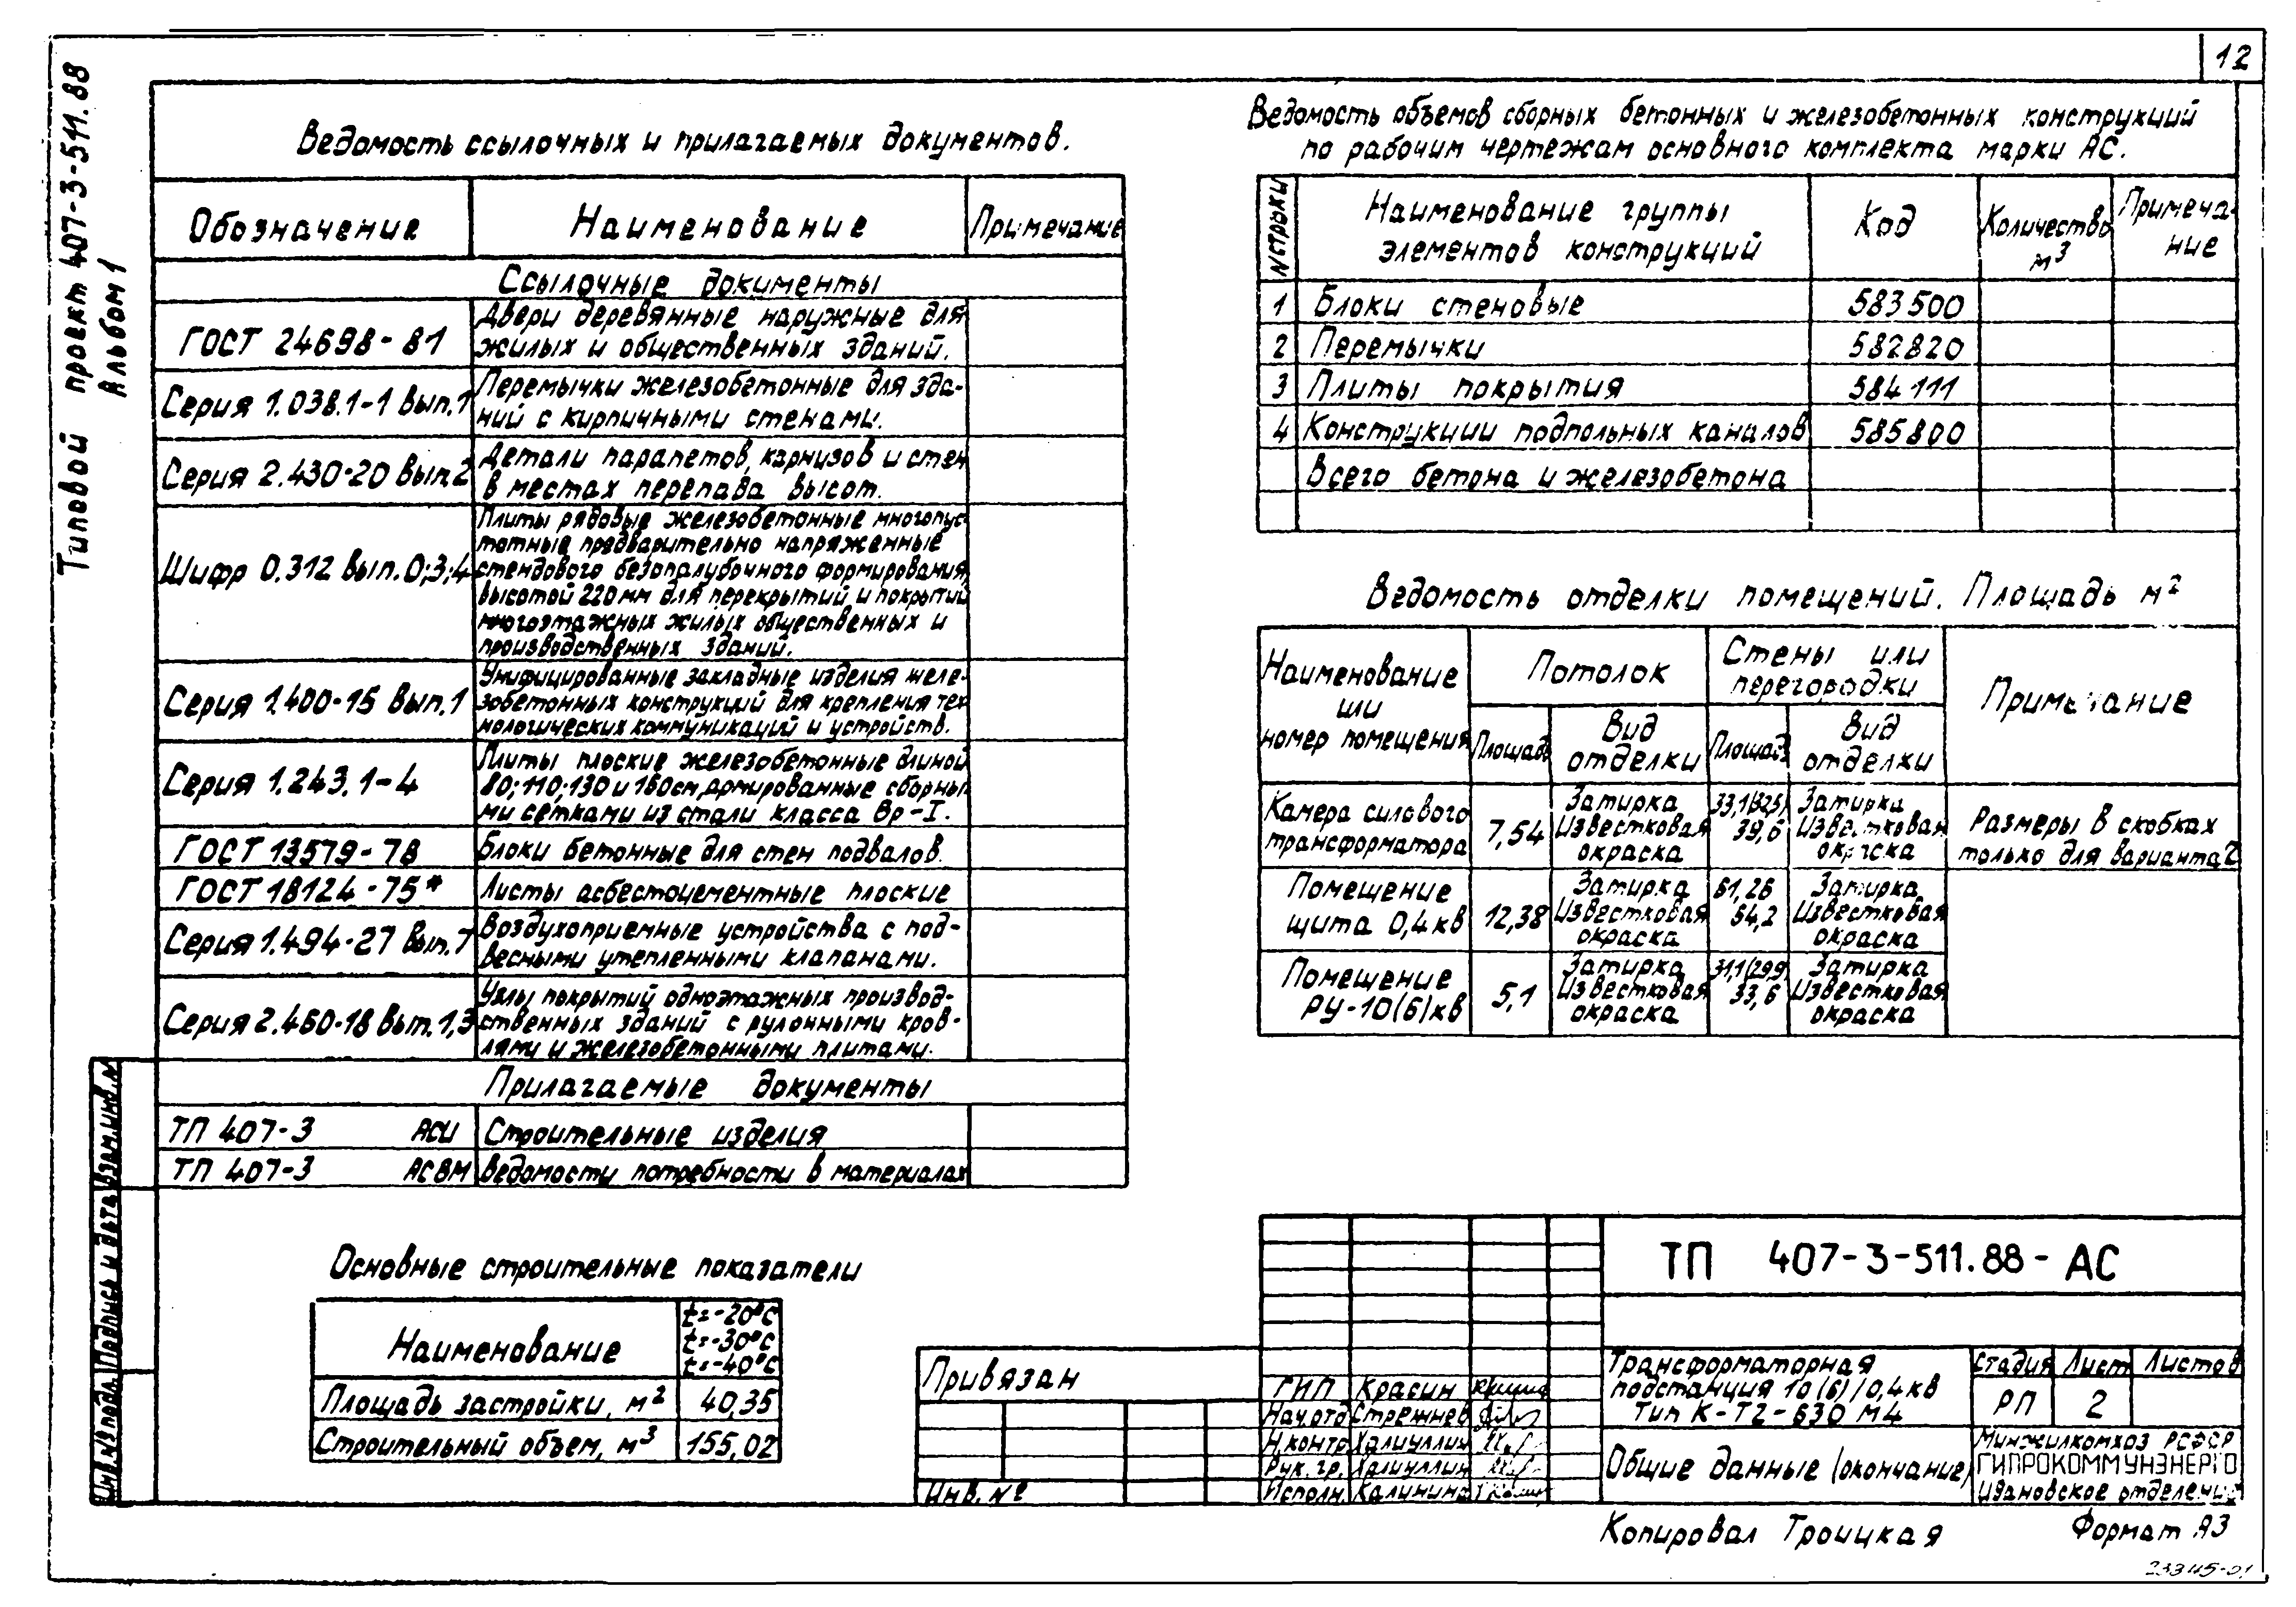 12
Типовой проект 407-3-511.88
Альбом 1
Ведомость ссылочных и прилагаемых документов.
Обозначение Наименование Примечание
Ссылочные документы
ГОСТ 24698-81
Двери деревянные наружные для
жилых и общественных зданий.
Серия 1.038.1-1 Вып.1
Перемычки железобетонные для зда-
ний с кирпичными стенами.
Серия 2.430-20 Вып.2
Детали парапетов, карнизов и стен
в местах перепава высот.
Шифр 0.312 Вып.0;3;4
Плиты рядовые железобетонные многопус-
тотные предварительно напряженные
стендового безопалубочного формирования,
высотой 220мм для перекрытий и покрытий
многоэтажных жилых общественных и
производственных зданий.
Серия 1.400-15 Вып.1
Унифицированные закладные изделия желе-
зобетонных конструкций для крепления тех
нологических коммуникаций и устройств.
Серия 1.243.1-4
Плиты плоские железобетонные длиной
80;110;130 и 160см, армированные сборны
ми сетками из стали класса Вр-I.
ГОСТ 13579-78
Блоки бетонные для стен подвалов.
ГОСТ 18124-75*
Листы асбестоцементные плоские
Серия 1.494-27 Вып.7
Воздухоприемные устройства с под-
весными утепленными клапанами.
Серия 2.460-18 Вып.1,3
Узлы покрытий одноэтажных производ-
ственных зданий с рулонными кров-
лями и железобетонными плитами.
Прилагаемые документы
ТП 407-3 АСИ Строительные изделия
ТП 407-3 АСВМ Ведомости потребности в материалах
Основные строительные показатели
Наименование
t=-20°С
t=-30°С
t=-40°С
Площадь застройки, м² 40,35
Строительный объем, м³ 155,02
Ведомость объемов сборных бетонных и железобетонных конструкций
по рабочим чертежам основного комплекта марки АС.
N строки
Наименование группы
элементов конструкций
Код
Количество
м³
Примеча-
ние
1 Блоки стеновые 583500
2 Перемычки 582820
3 Плиты покрытия 584111
4 Конструкции подпольных каналов 585800
Всего бетона и железобетона
Ведомость отделки помещений. Площадь м²
Наименование
или
номер помещения
Потолок
Стены или
перегородки
Примечание
Площадь
Вид
отделки
Площадь
Вид
отделки
Камера силового
трансформатора
7,54
Затирка
Известковая
окраска
33,1(32,5)
39,6
Затирка
Известковая
окраска
Размеры в скобках
только для варианта 2
Помещение
щита 0,4кв
12,38
Затирка
Известковая
окраска
61,26
54,2
Затирка
Известковая
окраска
Помещение
РУ-10(6)кв
5,1
Затирка
Известковая
окраска
31,1(29,9
33,6
Затирка
Известковая
окраска
Взам.инв.N
Подпись и дата
Инв.№подл.
Привязан
Инв. №
ТП 407-3-511.88-АС
ГИП Красин
Нач.отд Стрежнев
Н.контр Халиуллин
Рук.гр. Халиуллин
Исполн. Калинина
Трансформаторная
подстанция 10(6)/0,4кв
Тип К-Т2-630 М4
Стадия Лист Листов
РП 2
Общие данные (окончание)
Минжилкомхоз РСФСР
ГИПРОКОММУНЭНЕРГО
Ивановское отделение
Копировал Троицкая
Формат А3
23345-01